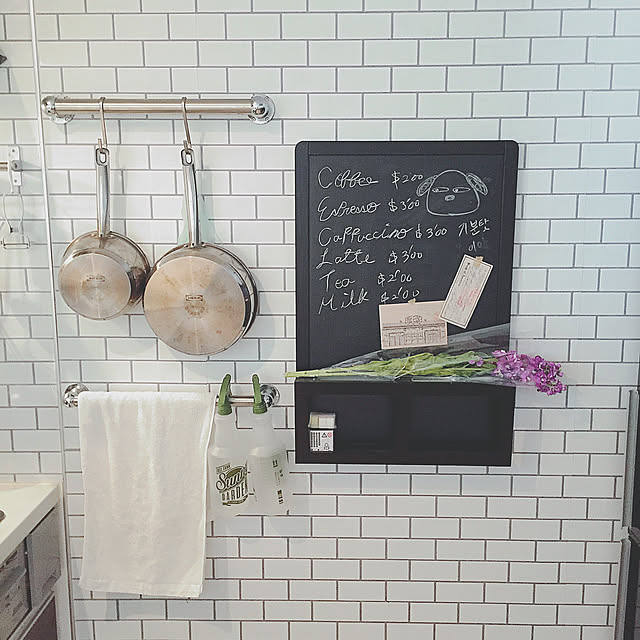 Coffee $2.00
Espresso $3.00
Cappuccino $3.00 기본탓
Latte $3.00
Tea $2.00
Milk $2.00
GARDEN